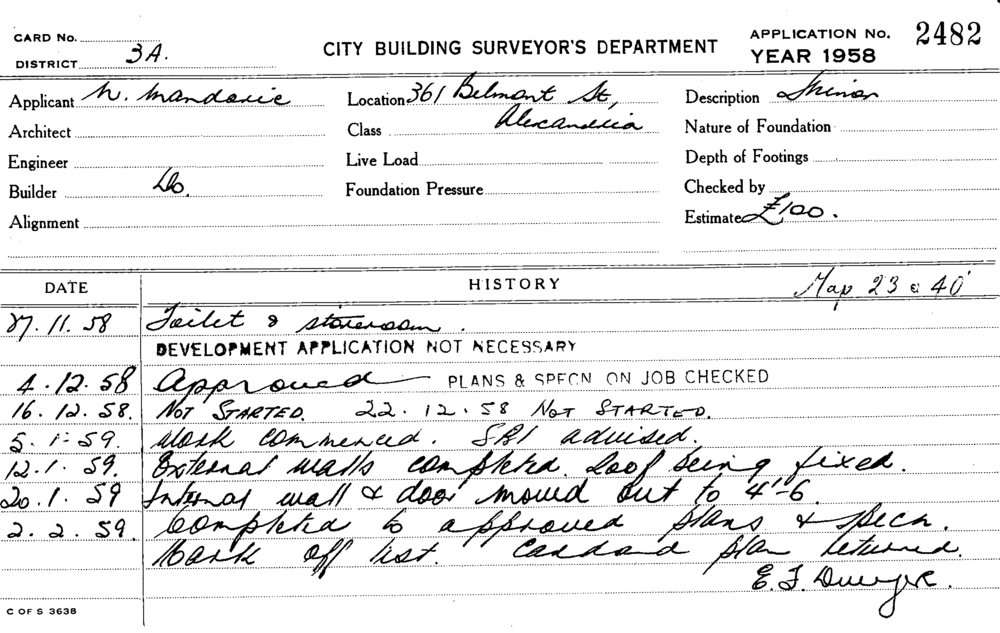 CARD No.
CITY BUILDING SURVEYOR'S DEPARTMENT
APPLICATION No. 2482
DISTRICT 3A.
YEAR 1958
Applicant N. Mandaric
Location 361 Belmont St,
Description Minor
Architect
Class Alexandria
Nature of Foundation
Engineer
Live Load
Depth of Footings
Builder Do.
Foundation Pressure
Checked by
Alignment
Estimate £100.
DATE
HISTORY
Map 23 & 40
27. 11. 58 Toilet & storeroom.
DEVELOPMENT APPLICATION NOT NECESSARY
4. 12. 58 Approved PLANS & SPECN ON JOB CHECKED
16. 12. 58. NOT STARTED. 22. 12. 58 NOT STARTED.
5. 1. 59. Work commenced. advised.
12. 1. 59. External walls completed. Roof being fixed.
20. 1. 59 Internal wall & door moved out to 4'-6.
2. 2. 59. Completed to approved plans & specn.
Mark off list. Card and plan returned.
E. J. Dwyer.
C OF S 3638